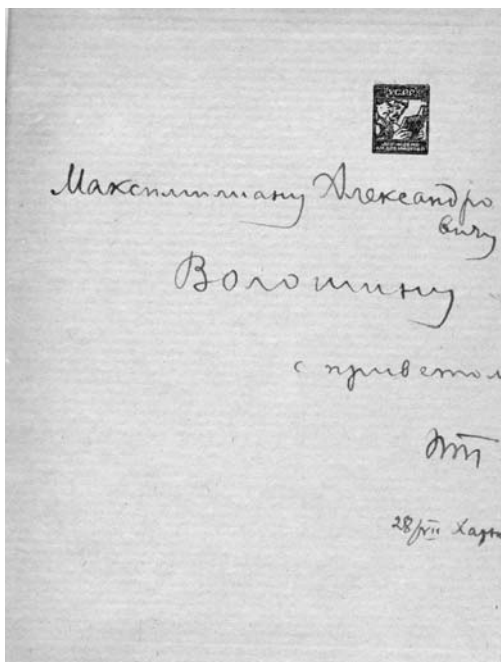 УСРР
Максимилиану Александро
вичу
Волошину
с приветом
28/VII Харь